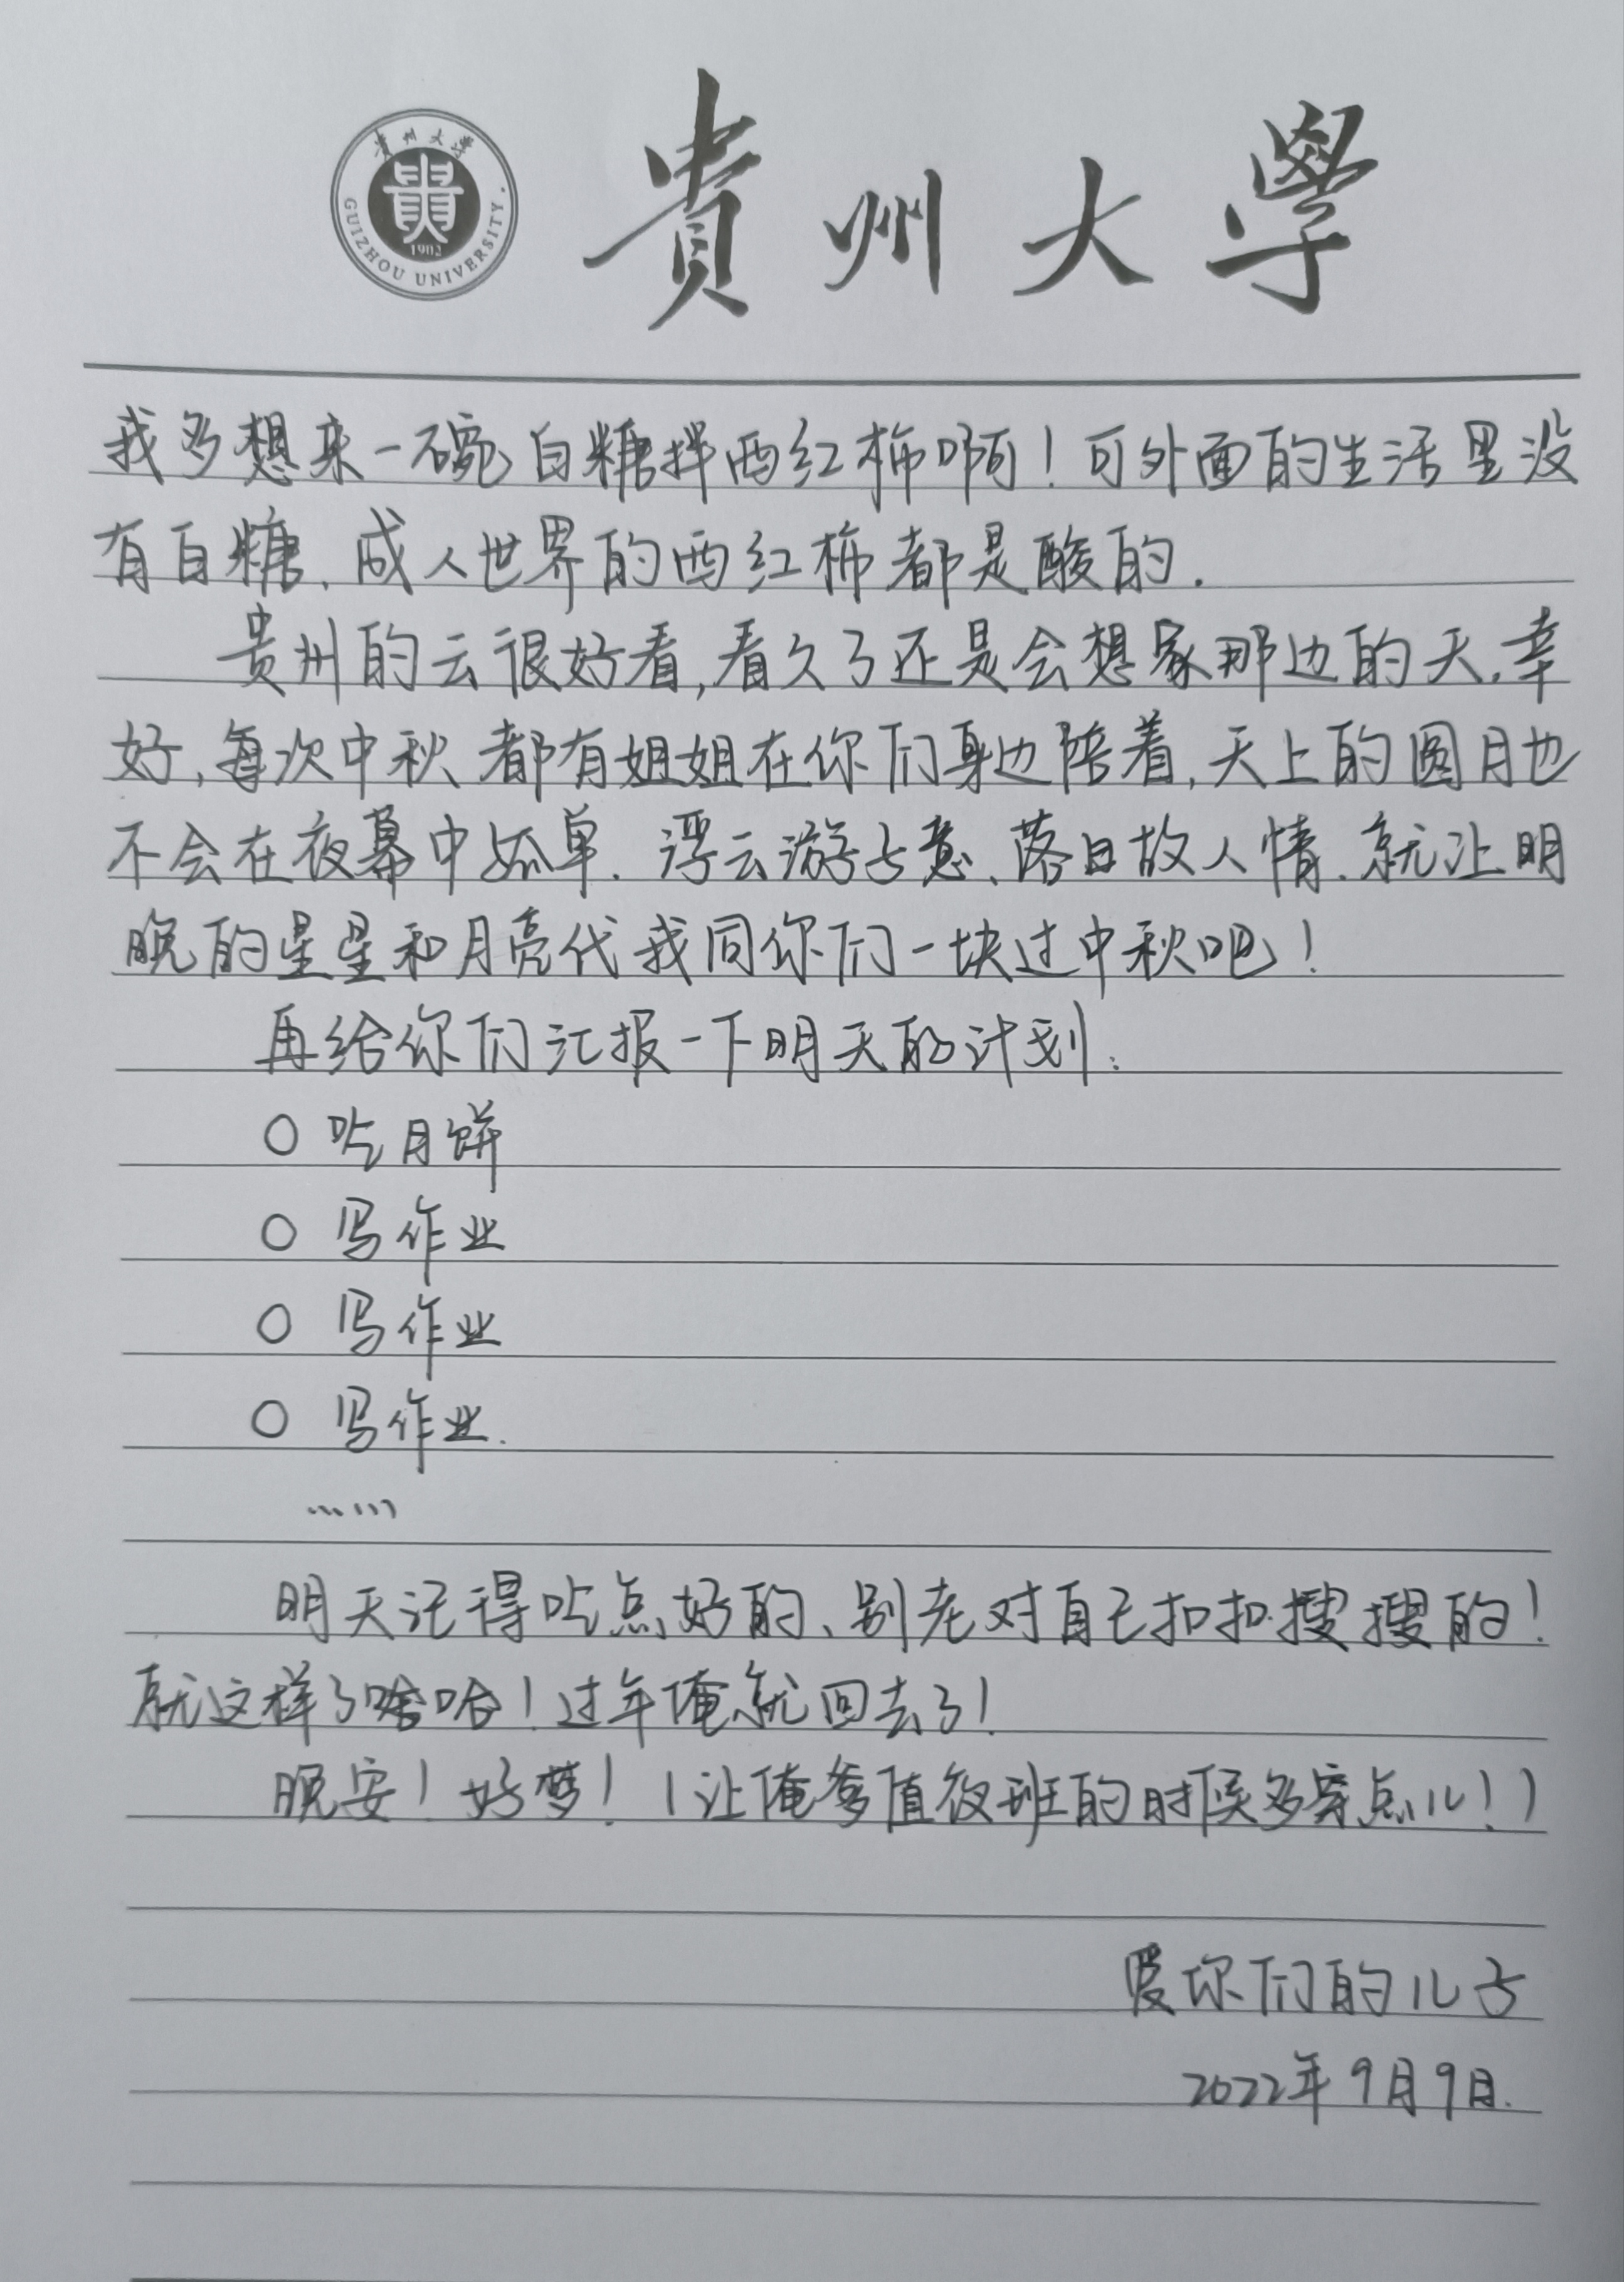 貴州大學
貴州大學
1902
GUIZHOU UNIVERSITY.
我多想来一碗白糖拌西红柿啊！可外面的生活里没
有白糖、成人世界的西红柿都是酸的.
贵州的云很好看,看久了还是会想家那边的天.幸
好,每次中秋都有姐姐在你们身边陪着,天上的圆月也
不会在夜幕中孤单.浮云游子意、落日故人情.就让明
晚的星星和月亮代我同你们一块过中秋吧！
再给你们汇报一下明天的计划:
○ 吃月饼
○ 写作业
○ 写作业
○ 写作业.
……
明天记得吃点好的、别老对自己扣扣搜搜的！
就这样了哈哈！过年俺就回去了！
晚安！好梦！(让俺爹值夜班的时候多穿点儿！)
爱你们的儿子
2022年9月9日.